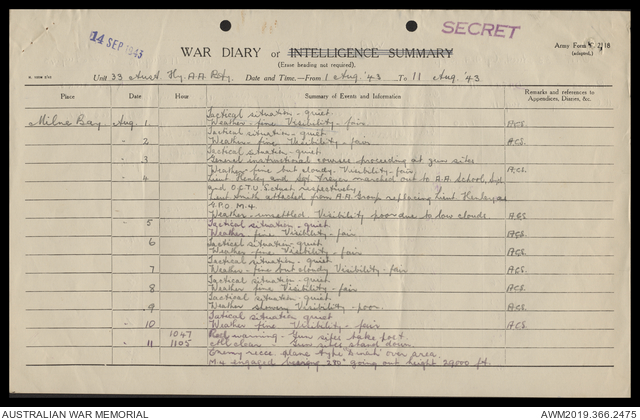 14 SEP 1943
SECRET
WAR DIARY or INTELLIGENCE SUMMARY
(Erase heading not required).
Army Form C. 2118
(adapted)
Unit 33 Aust. Hy. A.A. Bty. Date and Time.—From 1 Aug. '43 To 11 Aug. '43
Place Date Hour Summary of Events and Information Remarks and references to Appendices, Diaries, &c.
Tactical situation - quiet
Milne Bay Aug. 1 Weather - fine Visibility - fair ACS.
Tactical situation - quiet
2 Weather - fine Visibility - fair ACS.
Tactical situation - quiet
3 General instructional courses proceeding at gun sites
Weather fine but cloudy. Visibility - fair ACS.
4 Lieut Henley and Sgt marched out to A.A. School, Syd
and O.C.T.U. respectively
Lieut Smith attached from A.A. Group replacing Lieut Henley as
G.P.O. M.4
Weather - unsettled Visibility poor due to low clouds ACS
5 Tactical situation - quiet
Weather fine Visibility - fair ACS.
6 Tactical situation - quiet
Weather - fine Visibility - fair ACS.
Tactical situation - quiet
7 Weather - fine but cloudy Visibility - fair ACS.
Tactical situation - quiet
8 Weather fine Visibility - fair ACS.
Tactical situation - quiet
9 Weather showery Visibility - poor ACS.
Tactical situation quiet
10 Weather - fine Visibility - fair ACS.
1047 Red warning - Gun sites take post.
11 1105 All clear - Gun sites stand down
Enemy recce plane type Dinah over area.
M.4 engaged bearing 280° going out height 29000 ft.
AUSTRALIAN WAR MEMORIAL
AWM2019.366.2475